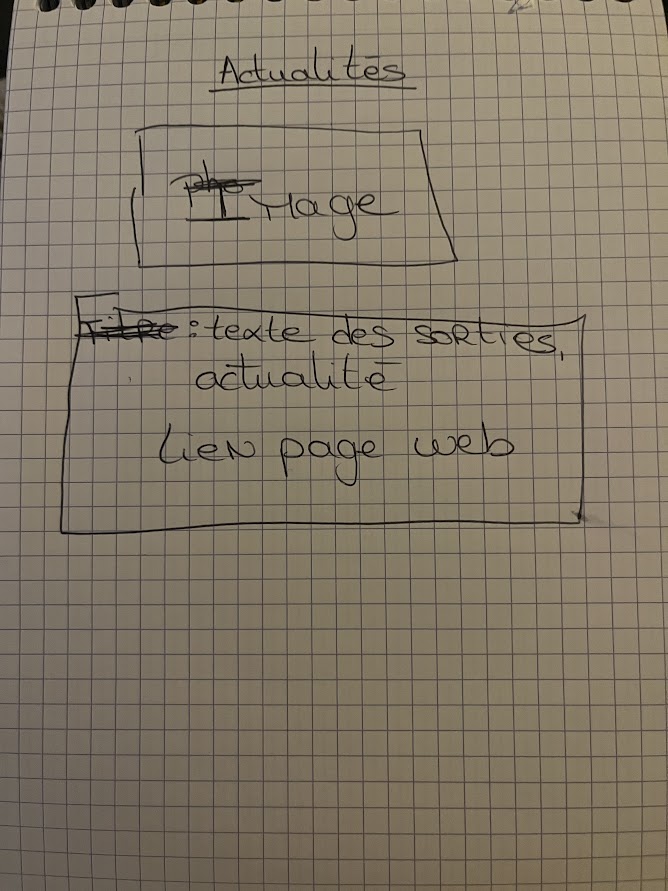 Actualités
Image
: texte des sorties,
actualité
Lien page web